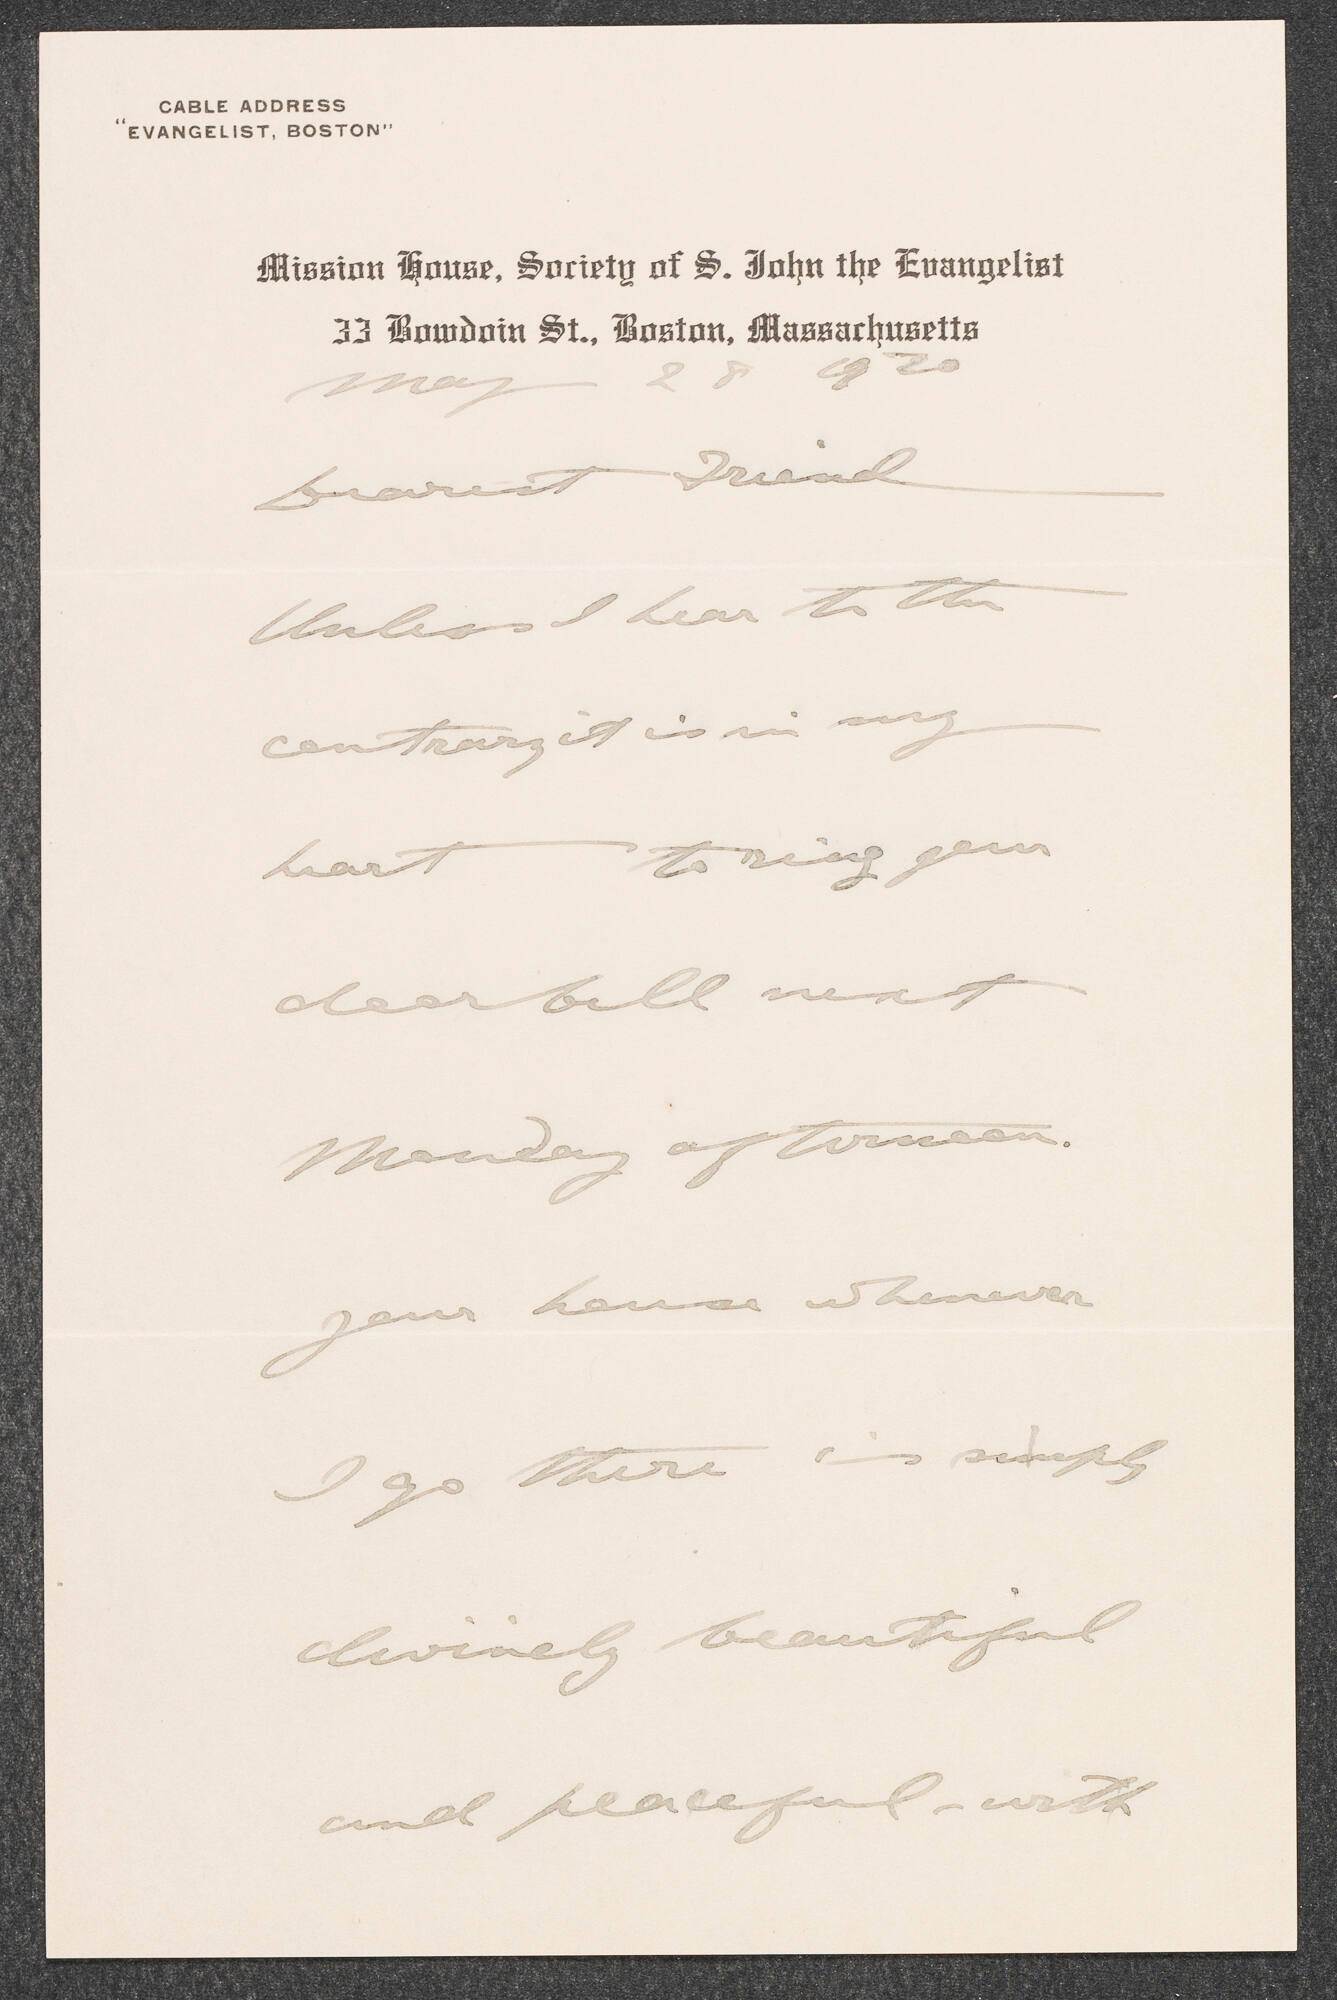 CABLE ADDRESS
"EVANGELIST, BOSTON"
Mission House, Society of S. John the Evangelist
33 Bowdoin St., Boston, Massachusetts
May 28 1920
Dearest Friend
Unless I hear to the
contrary it is in my
heart to ring your
dear bell next
Monday afternoon.
your house whenever
I go there is simply
divinely beautiful
and peaceful - with